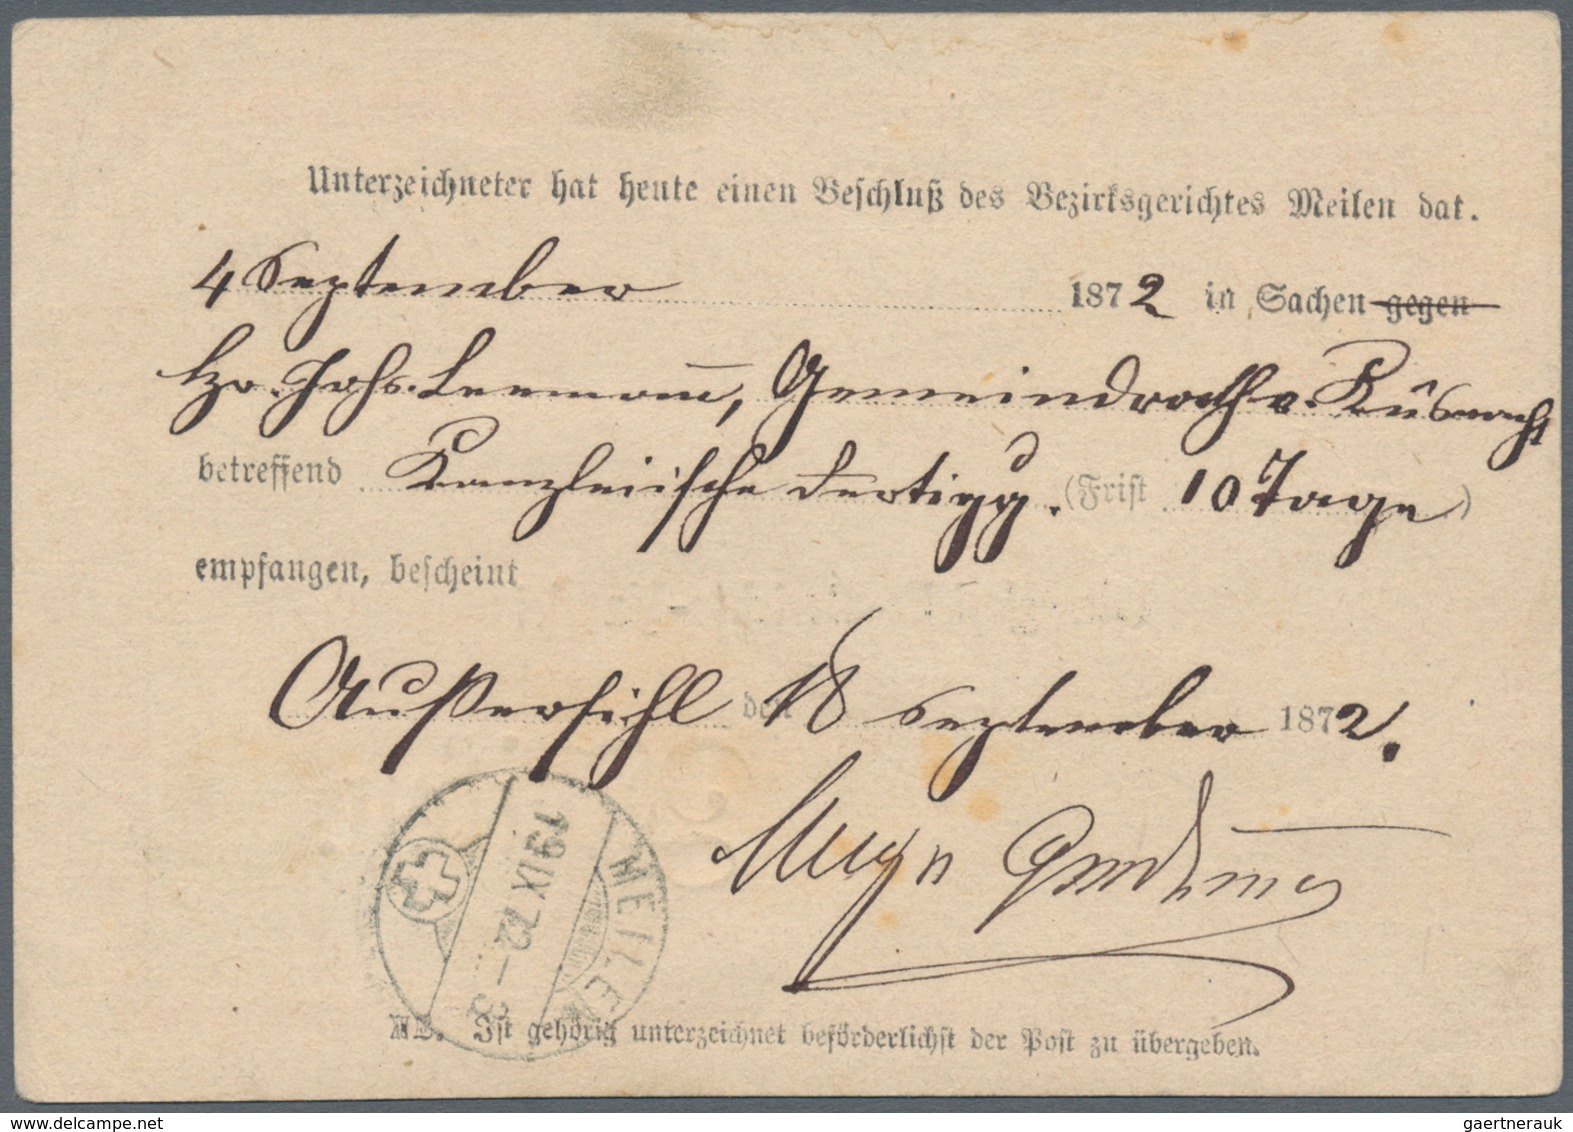 Unterzeichneter hat heute einen Beschluß des Bezirksgerichtes Meilen dat.
4 September 1872 in Sachen gegen
Hr. Johs. Leemann, Gemeindrath v. Küsnacht
betreffend Kanzleiische Fertigg. (Frist 10 Tage)
empfangen, bescheint
Außersihl den 18 September 1872.
MEILEN
19 IX 72 - 3
NB. Ist gehörig unterzeichnet beförderlichst der Post zu übergeben.
gaertnerauk @ www.delcampe.net